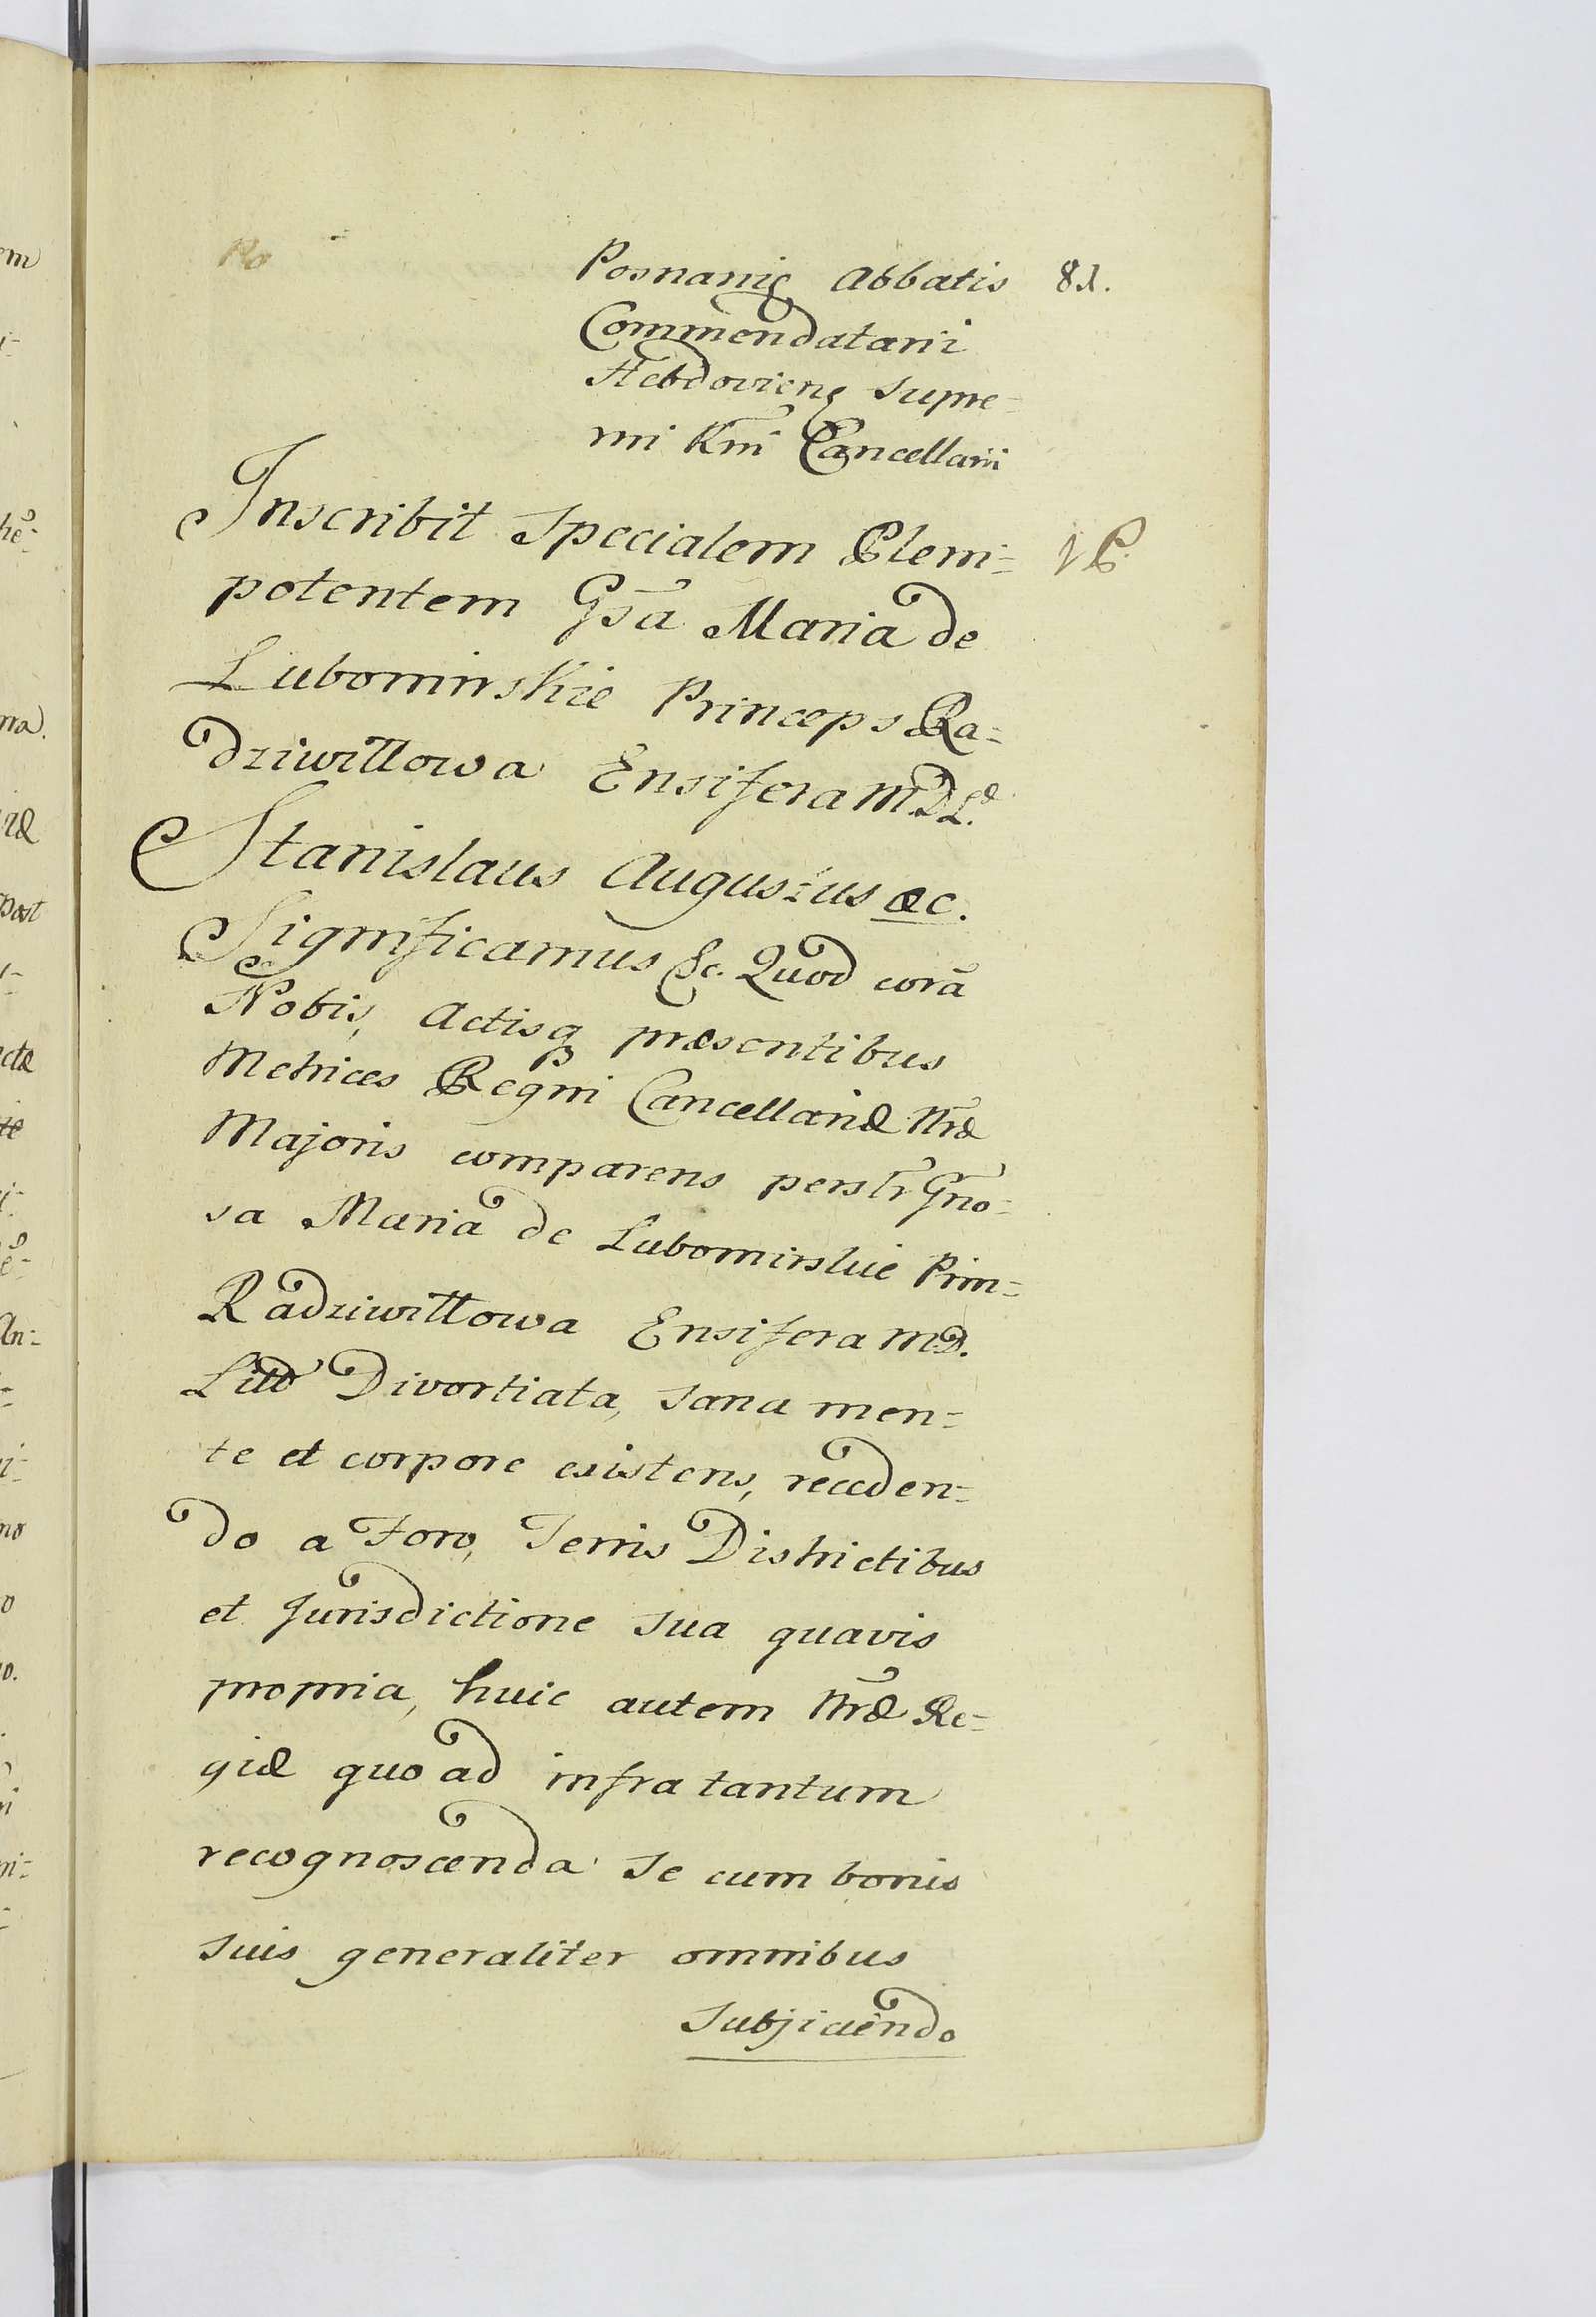 Posnanię Abbatis 81.
Commendatarii
Hebdovieng supre-
mi Rñi Cancellarii
Inscribit Specialem Pleni=
potentem Gsã Maria de
Lubomirskie Princeps Ra=
dziwiłłowa Ensifera M.D.L.
Stanislaus Augustus &c.
Significamus &c. Quod corã
Nobis, Actisq præsentibus
Metrices Regni Cancellariæ Nræ
Majoris comparens persltr Gno=
sa Maria de Lubomirskie Prin=
Radziwiłłowa Ensifera M.D.
Litt Divortiata, sana men=
te et corpore existens, receden=
do a Foro, Terris Districtibus
et Jurisdictione sua quavis
propria, huic autem Nræ Re=
giæ quo ad infra tantum
recognoscenda Se cum bonis
suis generaliter omnibus
Subjiciendo